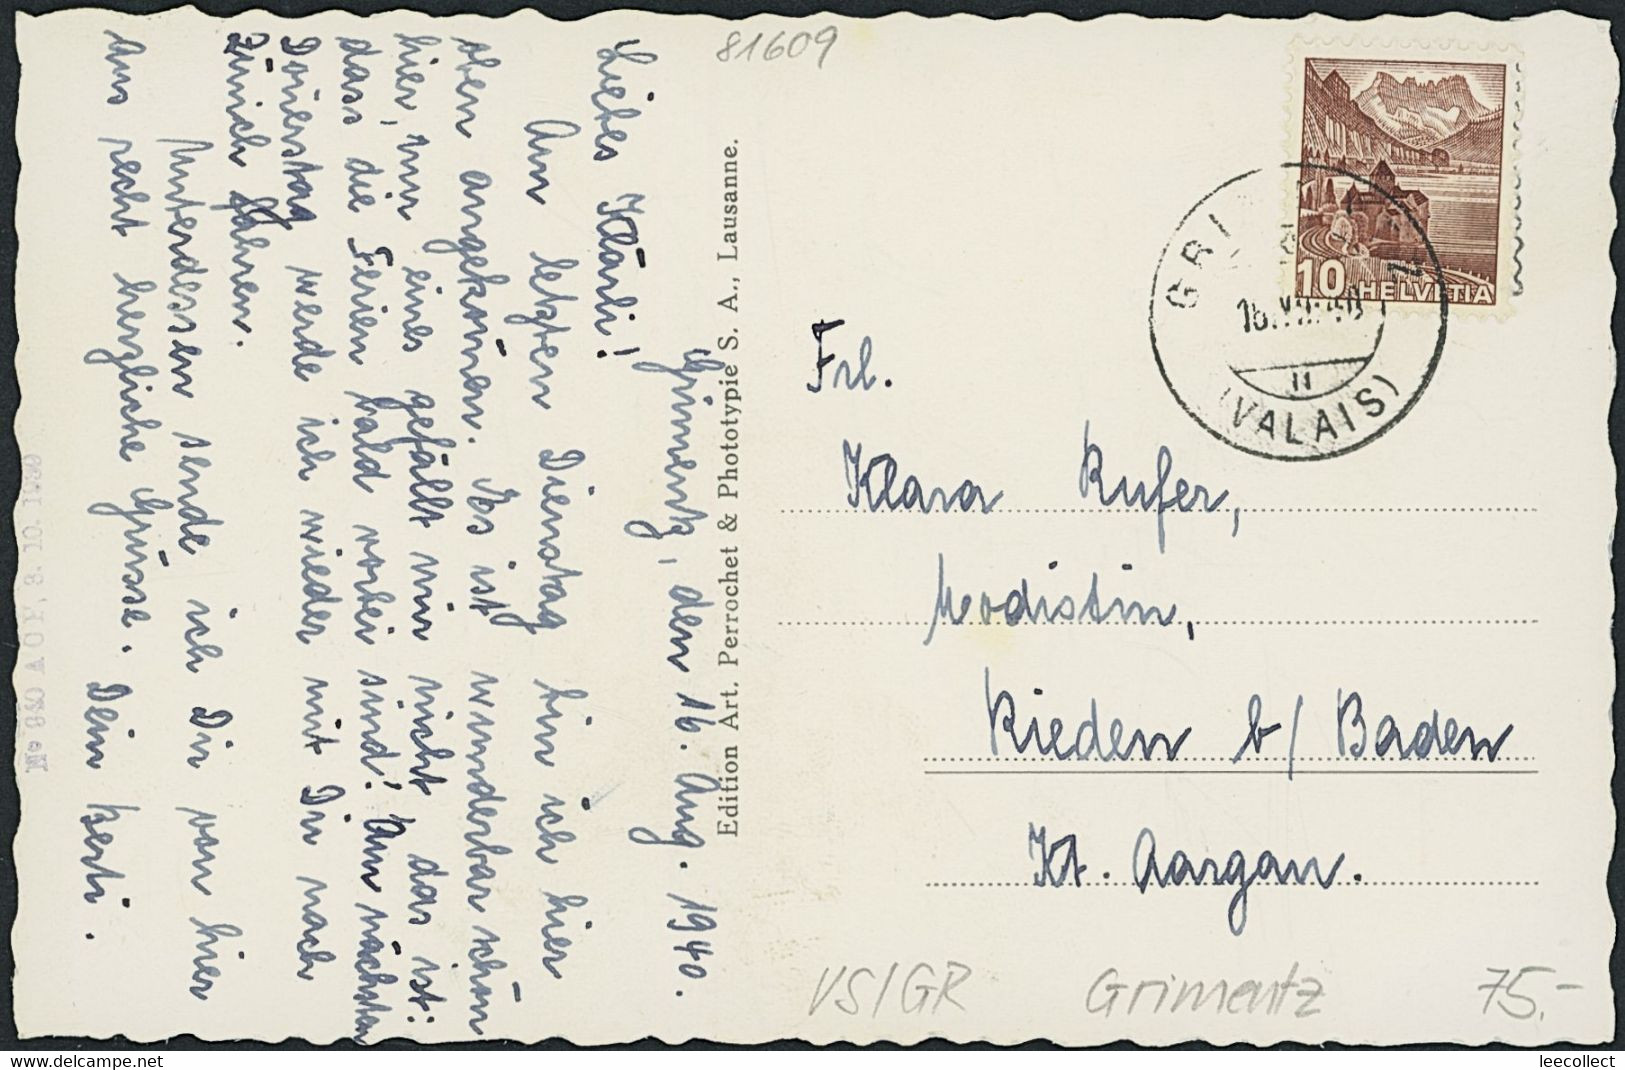 81609
Grimentz, den 16. Aug. 1940.
Liebes Klärli!
Am letzten Dienstag bin ich hier
oben angekom̄en. Es ist wunderbar schön
hier, nur eines gefällt mir nicht, das ist:
dass die Ferien bald vorbei sind! Am nächsten
Donnerstag werde ich wieder mit Dir nach
Zürich fahren.
Unterdessen sende ich Dir von hier
aus recht herzliche Grüsse. Dein Berti.
Edition Art. Perrochet & Phototypie S. A., Lausanne.
10 HELVETIA
(VALAIS)
Frl.
Klara Rufer,
Modistin,
Rieden b/ Baden
Kt. Aargau.
VS/GR Grimentz 75.-
delcampe.net
leecollect